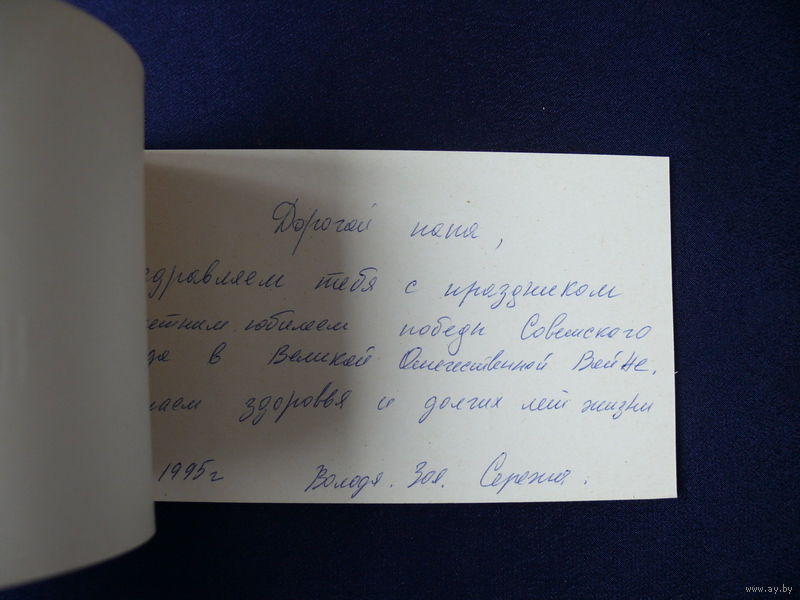 Дорогой папа,
здравляем тебя с праздником
етним юбилеем победы Советского
да в Великой Отечественной Войне.
лаем здоровья и долгих лет жизни
1995г Володя. Зоя. Сережа.
www.ay.by